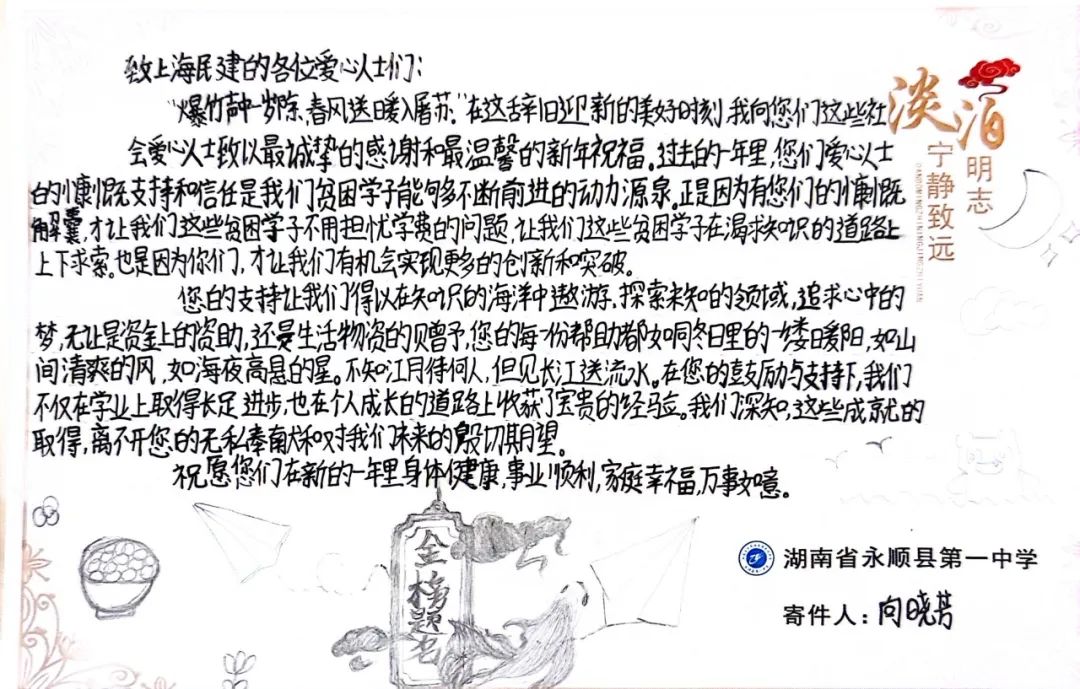 致上海民建的各位爱心人士们：
“爆竹声中一岁除，春风送暖入屠苏。”在这辞旧迎新的美好时刻，我向您们这些社
会爱心人士致以最诚挚的感谢和最温馨的新年祝福。过去的一年里，您们爱心人士
的慷慨支持和信任是我们贫困学子能够不断前进的动力源泉。正是因为有您们的慷慨
解囊，才让我们这些贫困学子不用担忧学费的问题，让我们这些贫困学子在渴求知识的道路上
上下求索。也是因为你们，才让我们有机会实现更多的创新和突破。
您的支持让我们得以在知识的海洋中遨游，探索未知的领域，追求心中的
梦，无让是资金上的资助，还是生活物资的赠予，您的每一份帮助都如同冬日里的一缕暖阳，如山
间清爽的风，如海夜高悬的星。不知江月待何人，但见长江送流水。在您的鼓励与支持下，我们
不仅在学业上取得长足进步，也在个人成长的道路上收获了宝贵的经验。我们深知，这些成就的
取得，离不开您的无私奉献和对我们未来的殷切期望。
祝愿您们在新的一年里身体健康，事业顺利，家庭幸福，万事如意。
淡泊
明志
宁静致远
DANBOMINGZHININGJINGZHIYUAN
金榜题名
湖南省永顺县第一中学
寄件人：向晓芳